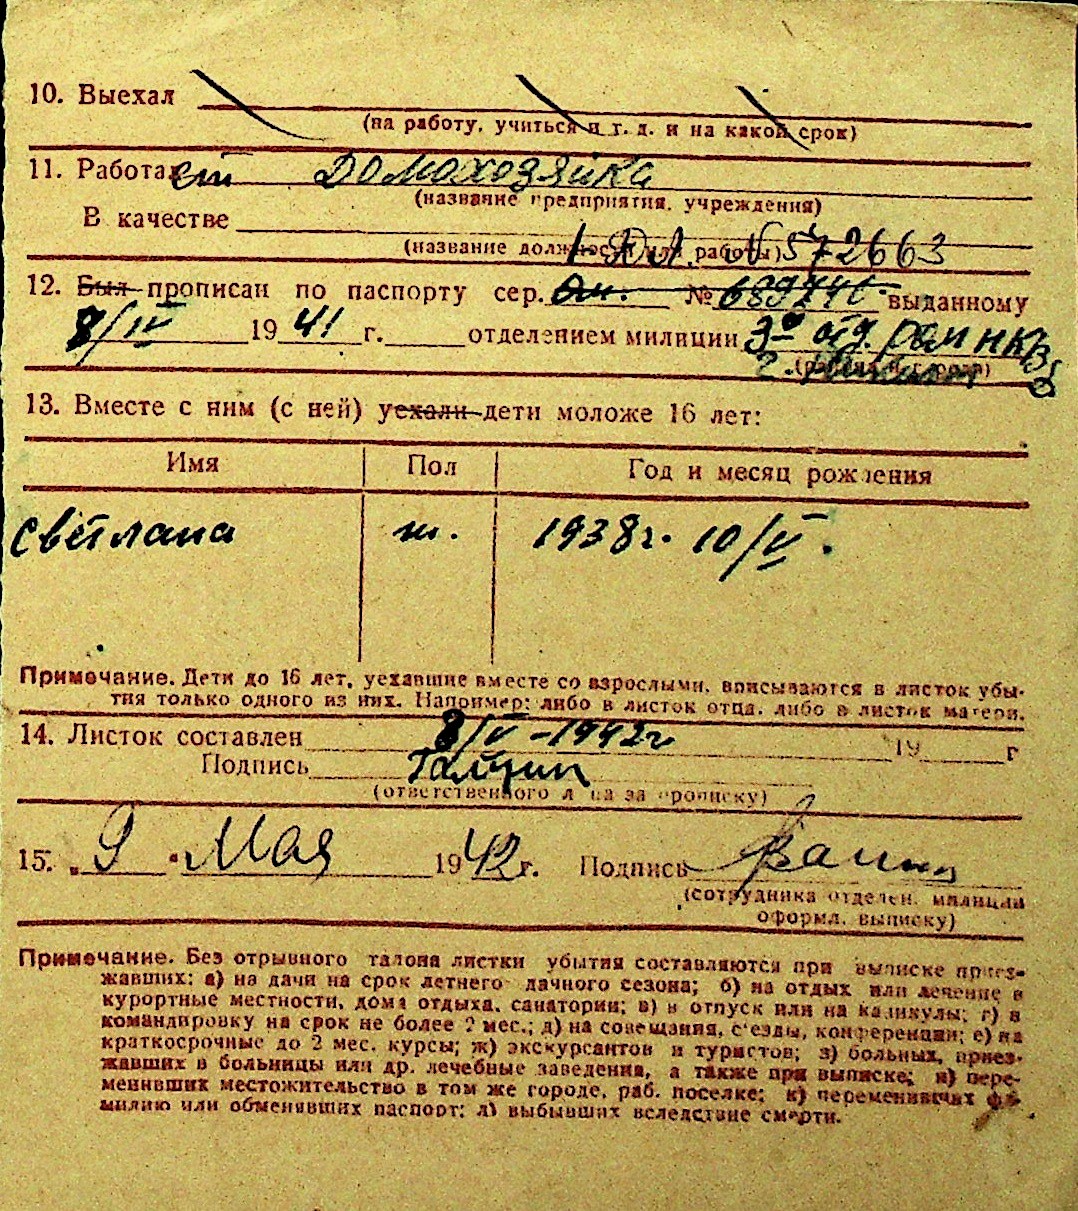 10. Выехал
(на работу, учиться и т. д. и на какой срок)
11. Работает Домохозяйка
(название предприятия, учреждения)
В качестве
(название должности или работы) № 572663
12. Был прописан по паспорту сер. № выданному
8/IV 1941 г. отделением милиции 3е отд. РОМ НКВД
13. Вместе с ним (с ней) уехали дети моложе 16 лет:
Имя Пол Год и месяц рождения
Светлана ж. 1938г. 10/V.
Примечание. Дети до 16 лет, уехавшие вместе со взрослыми, вписываются в листок убы-
тия только одного из них. Например: либо в листок отца, либо в листок матери.
14. Листок составлен 8/V-1942г 19 г
Подпись
(ответственного лица за прописку)
15. „9" Мая 1942 г. Подпись
(сотрудника отделен. милиции
оформл. выписку)
Примечание. Без отрывного талона листки убытия составляются при выписке приез-
жавших: а) на дачи на срок летнего дачного сезона; б) на отдых или лечение в
курортные местности, дома отдыха, санатории; в) в отпуск или на каникулы; г) в
командировку на срок не более 2 мес.; д) на совещания, съезды, конференции; е) на
краткосрочные до 2 мес. курсы; ж) экскурсантов и туристов; з) больных, приез-
жавших в больницы или др. лечебные заведения, а также при выписке; и) пере-
менивших местожительство в том же городе, раб. поселке; к) переменивших фа-
милию или обменявших паспорт; л) выбывших вследствие смерти.